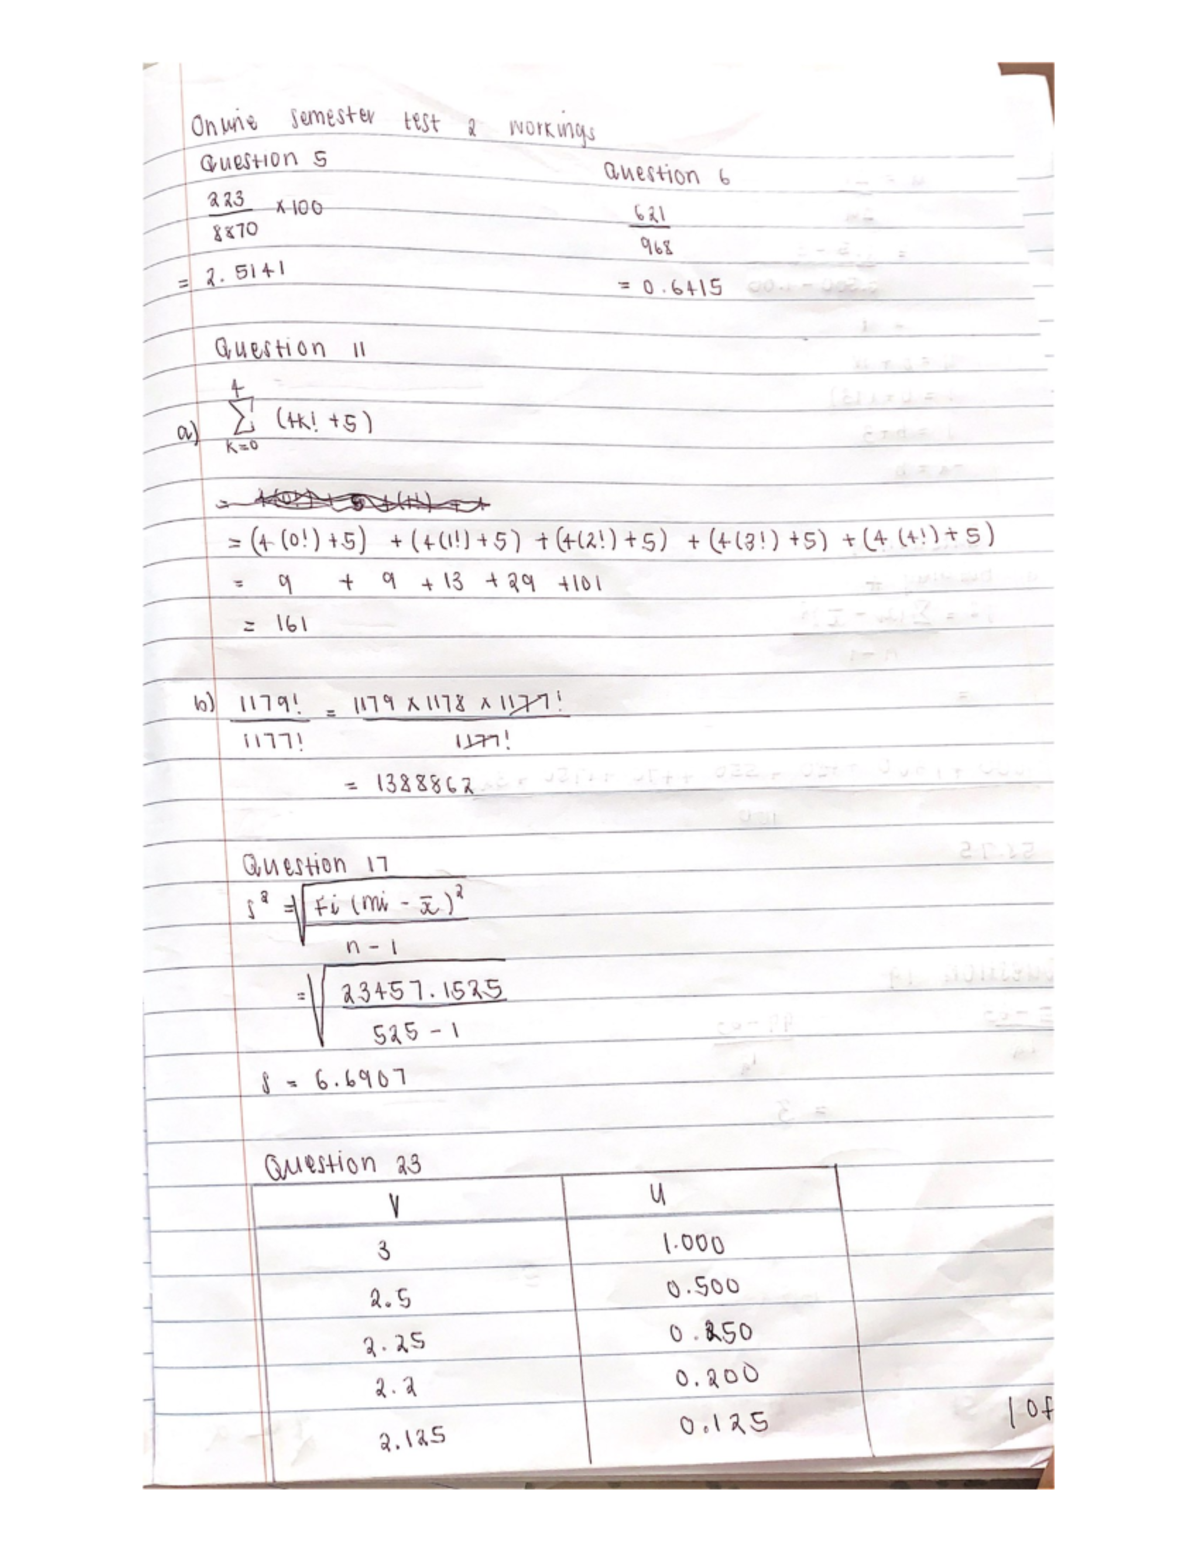 Online semester test 2 workings
Question 5
223/8870 x 100
= 2.5141
Question 6
621/968
= 0.6415
Question 11
a) 4 Σ k=0 (4k! + 5)
= (4(0!) + 5) + (4(1!) + 5) + (4(2!) + 5) + (4(3!) + 5) + (4(4!) + 5)
= 9 + 9 + 13 + 29 + 101
= 161
b) 1179!/1177! = 1179 x 1178 x 1177!/1177!
= 1388862
Question 17
s² = √ Fi (mi - x̄)²/n - 1
= √ 23457.1525/525 - 1
s = 6.6907
Question 23
V U
3 1.000
2.5 0.500
2.25 0.250
2.2 0.200
2.125 0.125
1 Of